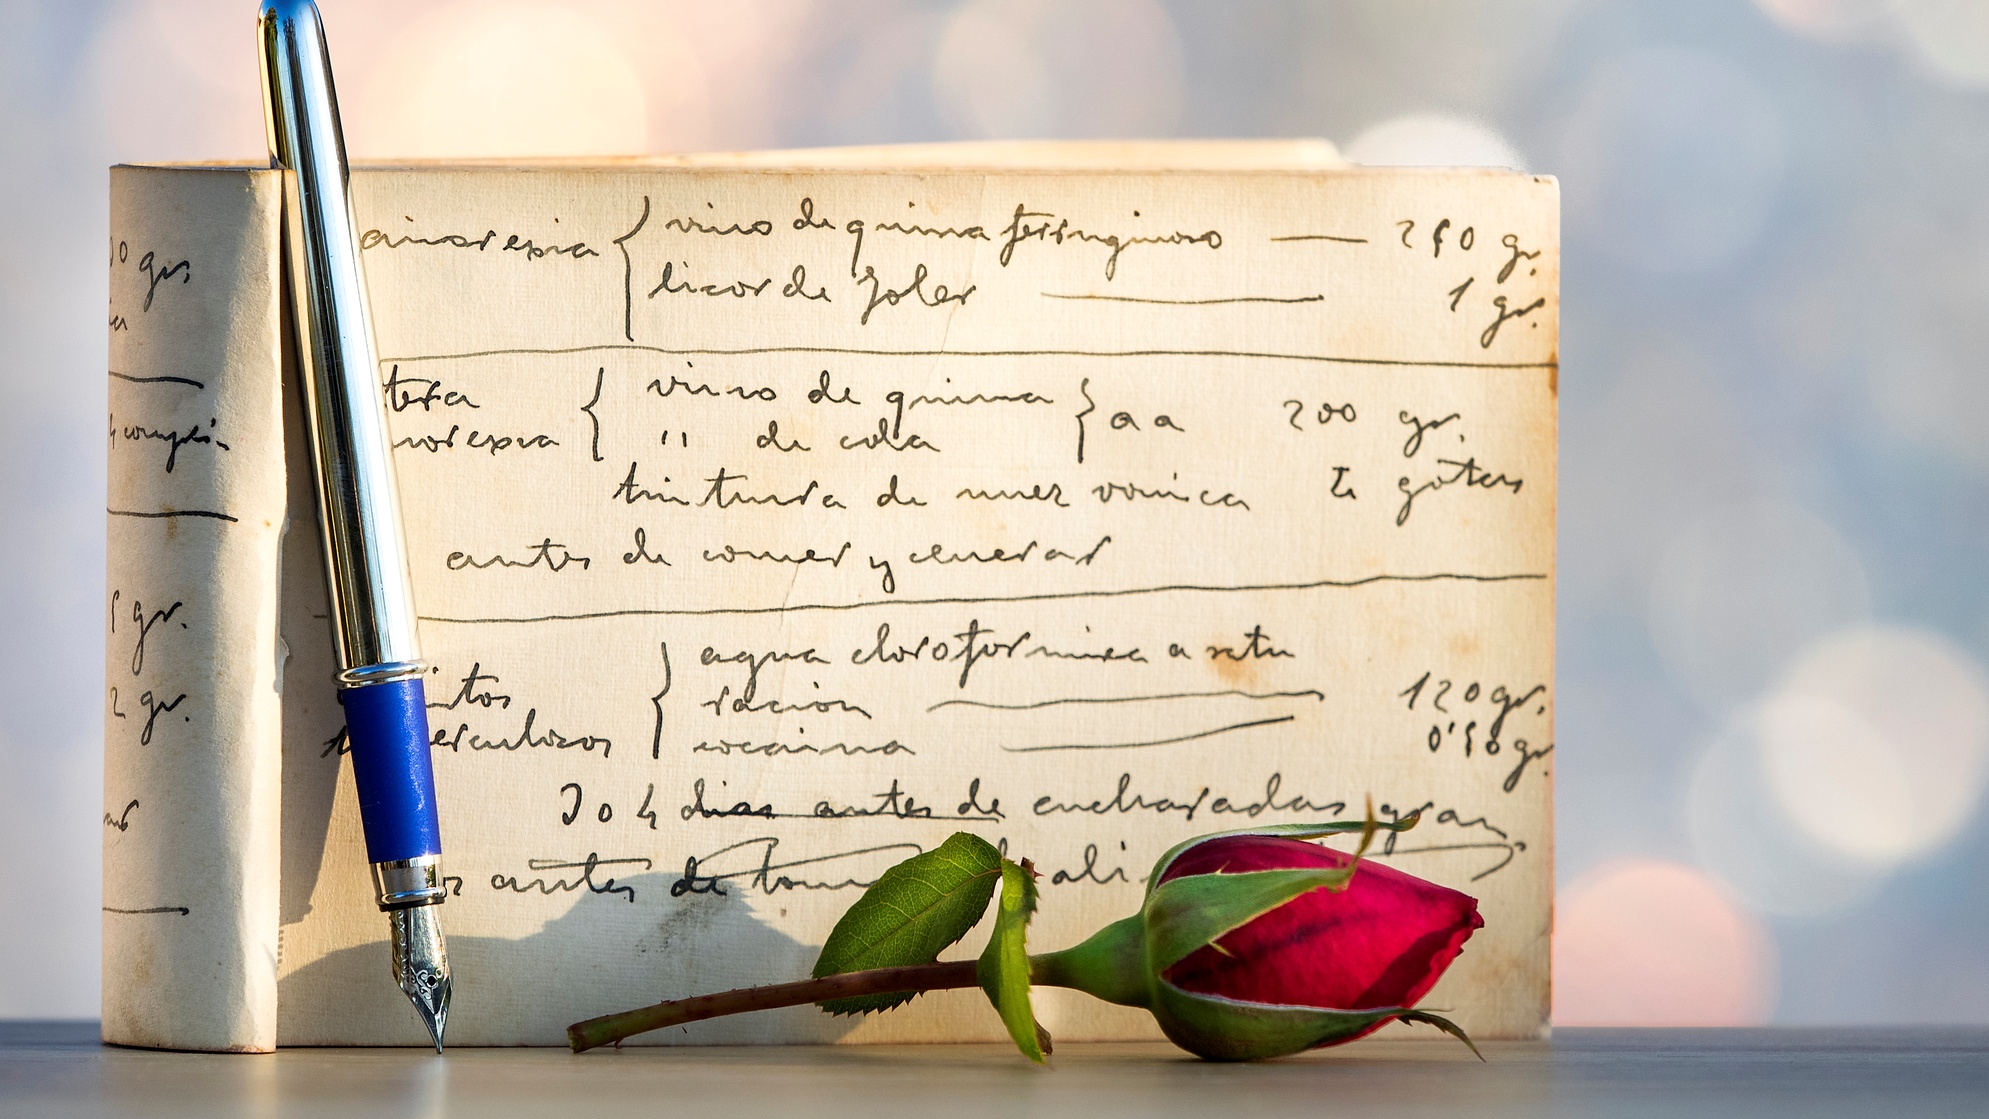 00 gr.
anorexia { vino de quina ferruginoso — 250 gr.
licor de Foler — 1 gr.
tera { vino de quina } aa 200 gr.
norexia { " de cola
tintura de nuez vomica gotas
antes de comer y cenar
5 gr.
agua cloroformica a satu
2 gr.
itos { racion — 120 gr.
erculosos cocaina — 0'50 gr.
3 o 4 dias antes de cucharadas gran
antes de ali